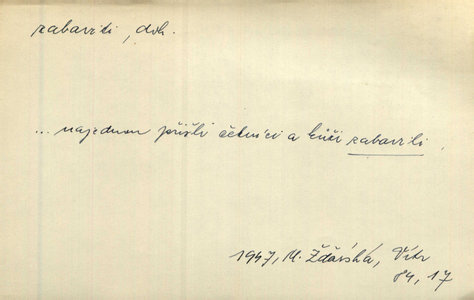 zabaviti, dok.
... najednou přišli četníci a kůži zabavili.
1947, M. Žďárská, Vítr
84, 17